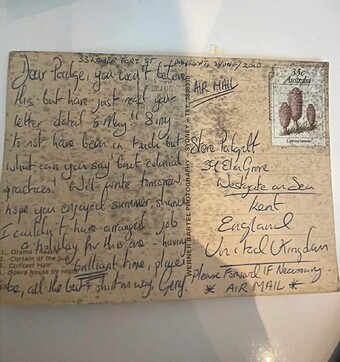 33 LOWER FORT ST SYDNEY 2000
Dear Padge, you won't believe
this but have just read your
letter dated 8 May!! Sorry
not have been in touch but
what can you say but colonial
practices. Will write tomorrow,
hope you enjoyed summer, shame
I couldn't have arranged job
on holiday for this are - having
brilliant time, please
be, all the best short on way, Gerry
AIR MAIL
33c
Australia
Steve Padgett
Elm Grove
Westgate on Sea
Kent
England
United Kingdom
Please Forward IF Necessary
* AIR MAIL *
WERNER BARTEL PHOTOGRAPHY - SYDNEY - TEL:
1. Drama Theatre
2. Curtain of the Sun
3. Concert Hall
4. Opera house by night